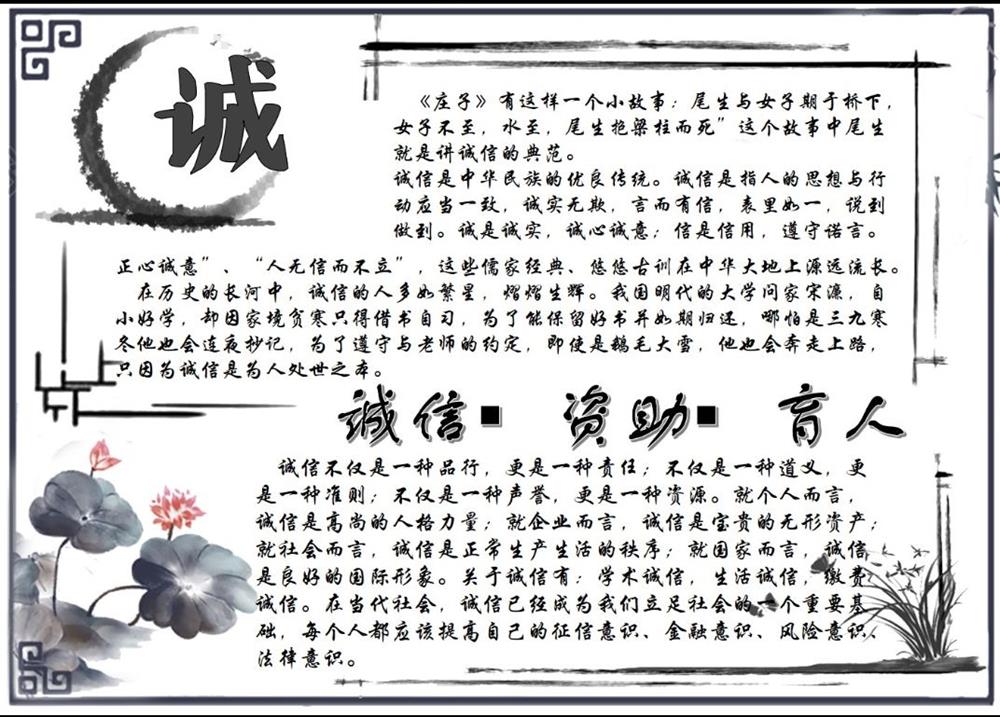 诚
《庄子》有这样一个小故事：尾生与女子期于桥下，
女子不至，水至，尾生抱梁柱而死”这个故事中尾生
就是讲诚信的典范。
诚信是中华民族的优良传统。诚信是指人的思想与行
动应当一致，诚实无欺，言而有信，表里如一，说到
做到。诚是诚实，诚心诚意；信是信用，遵守诺言。
正心诚意”、“人无信而不立”，这些儒家经典、悠悠古训在中华大地上源远流长。
在历史的长河中，诚信的人多如繁星，熠熠生辉。我国明代的大学问家宋濂，自
小好学，却因家境贫寒只得借书自习，为了能保留好书并如期归还，哪怕是三九寒
冬他也会连夜抄记，为了遵守与老师的约定，即使是鹅毛大雪，他也会奔走上路，
只因为诚信是为人处世之本。
诚信▪ 资助▪ 育人
诚信不仅是一种品行，更是一种责任；不仅是一种道义，更
是一种准则；不仅是一种声誉，更是一种资源。就个人而言，
诚信是高尚的人格力量；就企业而言，诚信是宝贵的无形资产；
就社会而言，诚信是正常生产生活的秩序；就国家而言，诚信
是良好的国际形象。关于诚信有：学术诚信，生活诚信，缴费
诚信。在当代社会，诚信已经成为我们立足社会的一个重要基
础，每个人都应该提高自己的征信意识、金融意识、风险意识、
法律意识。